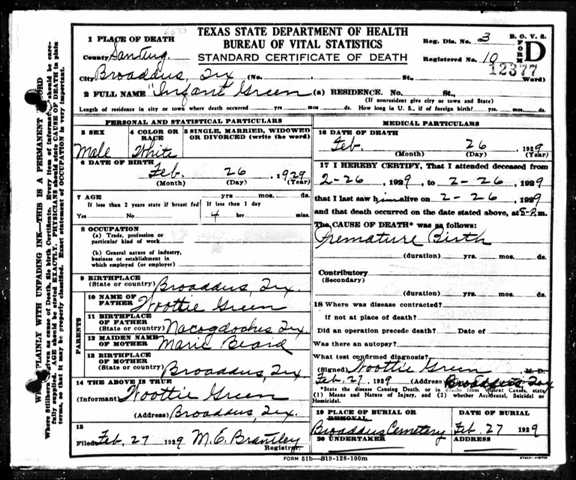 TEXAS STATE DEPARTMENT OF HEALTH
BUREAU OF VITAL STATISTICS
STANDARD CERTIFICATE OF DEATH
Reg. Dis. No. 3
B. O. V. S.
FORM D
Registered No. 10
12377
1 PLACE OF DEATH
County
City Broaddus, Tex (No. St., Ward)
2 FULL NAME "Infant" Green (a) RESIDENCE. No. St.,
(If nonresident give city or town and State)
Length of residence in city or town where death occurred yrs. mos. ds. How long in U. S., if of foreign birth? yrs. mos. ds.
PERSONAL AND STATISTICAL PARTICULARS
3 SEX
Male
4 COLOR OR RACE
White
5 SINGLE, MARRIED, WIDOWED OR DIVORCED (write the word)
6 DATE OF BIRTH
Feb. 26 1929
(Month) (Day) (Year)
7 AGE yrs. mos. ds.
If less than 2 years state if breast fed If less than 1 day
Yes No 4 hrs mins.
8 OCCUPATION
(a) Trade, profession or particular kind of work
(b) General nature of industry, business or establishment in which employed (or employer)
9 BIRTHPLACE
(State or country) Broaddus, Tex.
PARENTS
10 NAME OF FATHER Woottie Green
11 BIRTHPLACE OF FATHER
(State or country) Nacogdoches Tex.
12 MAIDEN NAME OF MOTHER Marie Beard
13 BIRTHPLACE OF MOTHER
(State or country) Broaddus, Tex
14 THE ABOVE IS TRUE
(Informant) Woottie Green
(Address) Broaddus, Tex.
15
Filed Feb. 27 1929 M. E. Brantley
Registrar
MEDICAL PARTICULARS
16 DATE OF DEATH
Feb. 26 1929
(Month) (Day) (Year)
17 I HEREBY CERTIFY, That I attended deceased from
2-26, 1929, to 2-26, 1929
that I last saw him alive on 2-26, 1929
and that death occurred on the date stated above, at m.
The CAUSE OF DEATH* was as follows:
Premature Birth
(duration) yrs. mos. ds.
Contributory
(Secondary)
(duration) yrs. mos. ds.
18 Where was disease contracted?
if not at place of death?
Did an operation precede death? Date of
Was there an autopsy?
What test confirmed diagnosis?
(Signed) Woottie Green M. D.
Feb. 27, 1929 (Address) Broaddus Tex
*State the disease Causing Death, or in deaths from Violent Causes, state (1) Means and Nature of Injury, and (2) whether Accidental, Suicidal or Homicidal.
19 PLACE OF BURIAL OR REMOVAL
Broaddus Cemetery
DATE OF BURIAL
Feb 27 1929
20 UNDERTAKER
ADDRESS